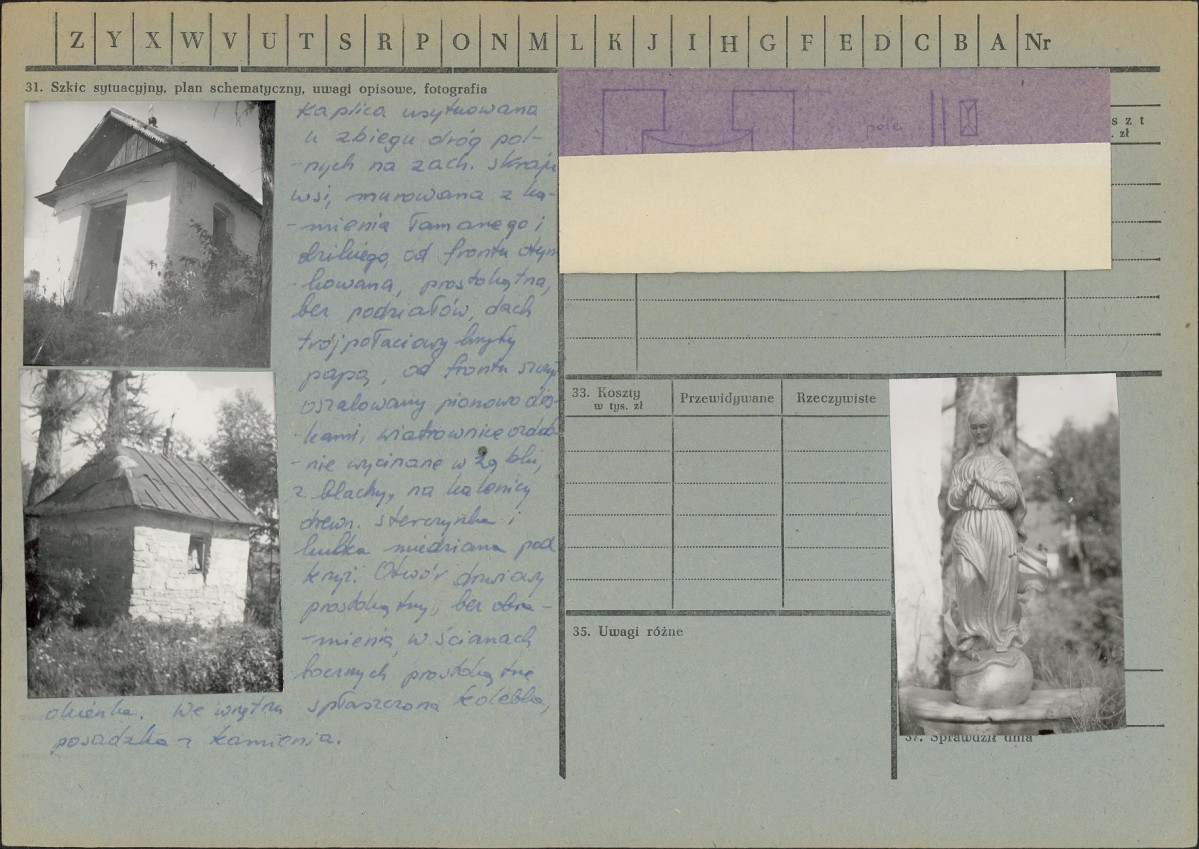 Z Y X W V U T S R P O N M L K J I H G F E D C B A Nr
31. Szkic sytuacyjny, plan schematyczny, uwagi opisowe, fotografia
Kaplica usytuowana
u zbiegu dróg pol-
-nych na zach. skraju
wsi, murowana z ka-
-mienia łamanego i
dzikiego, od frontu otyn
-kowana, prostokątna,
bez podziałów, dach
trójpołaciowy kryty
papą, od frontu
oszalowany pionowo des-
-kami, wiatrownice ozdob
-nie wycinane w ząbki,
z blachy, na kalenicy
drewn. sterczynka i
kulka miedziana pod
krzyż. Otwór drzwiowy
prostokątny, bez obra-
-mienia, w ścianach
bocznych prostokątne
okienka. We wnętrzu spłaszczona kolebka,
posadzka z kamienia.
pole
s z t
. zł
33. Koszty
w tys. zł
Przewidywane
Rzeczywiste
35. Uwagi różne
37. Sprawdził dnia